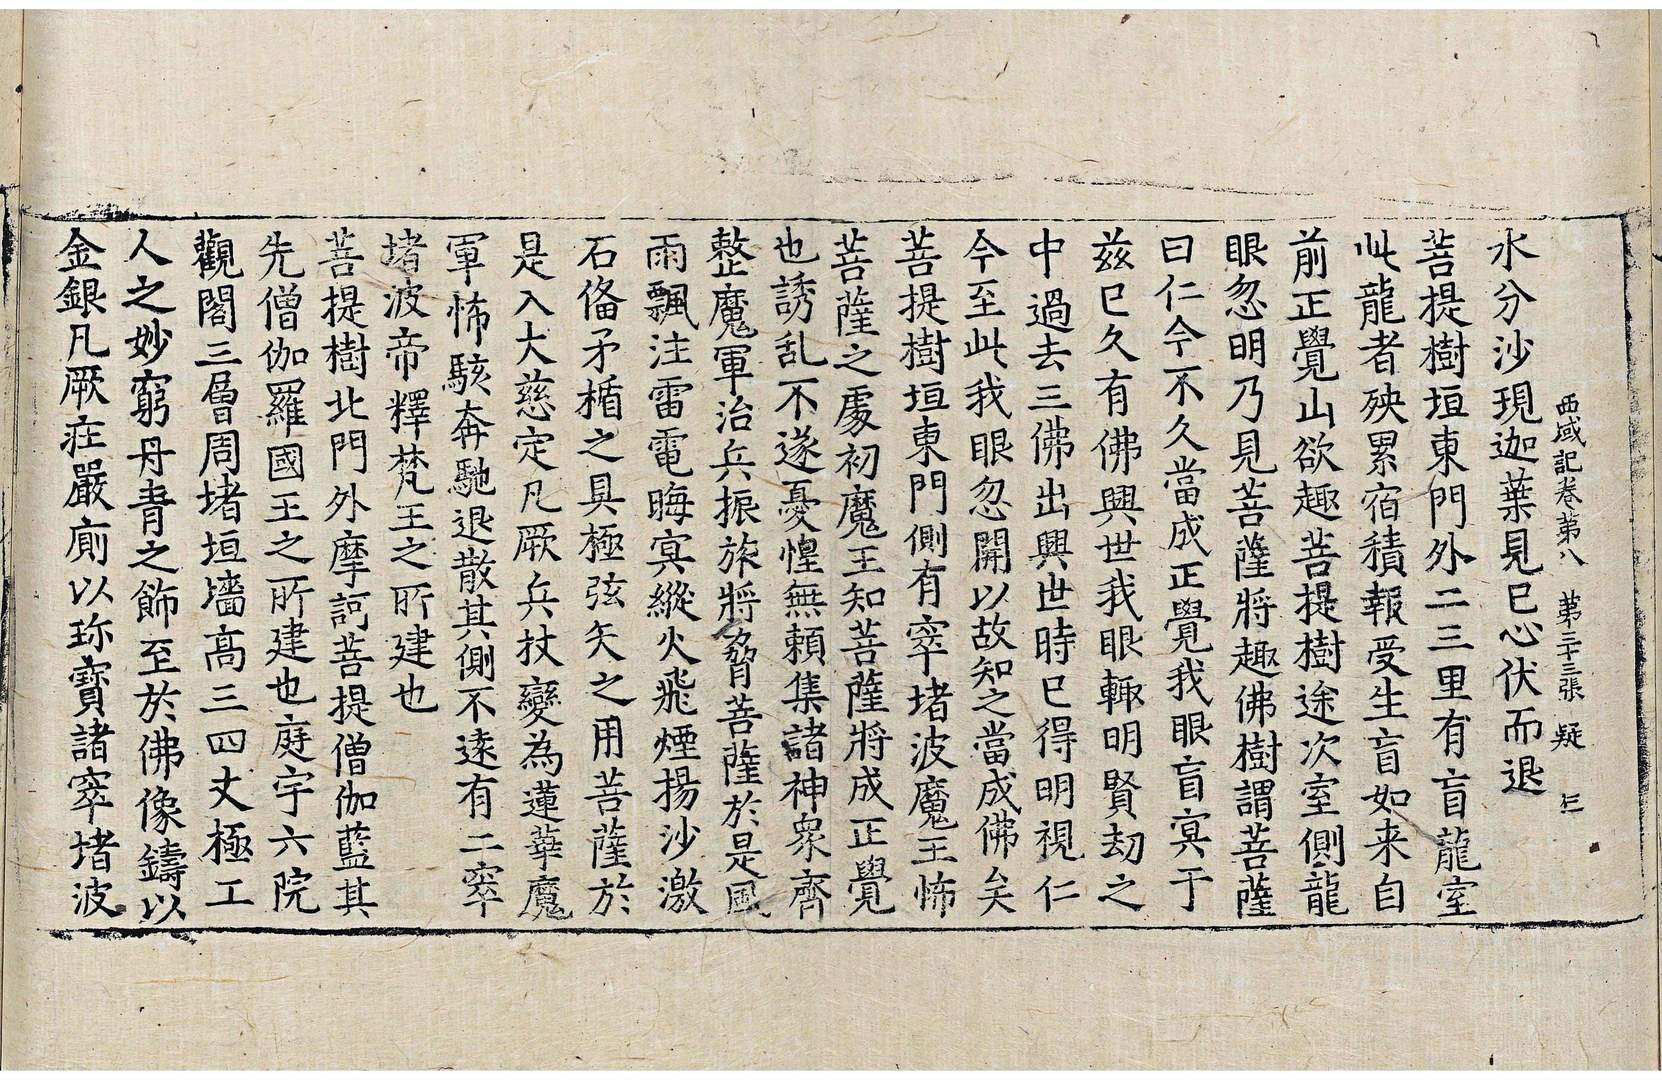 西域記卷第八　第三十三張　疑
水分沙現迦葉見已心伏而退
菩提樹垣東門外二三里有盲龍室
此龍者殃累宿積報受生盲如来自
前正覺山欲趣菩提樹途次室側龍
眼忽明乃見菩薩將趣佛樹謂菩薩
曰仁今不久當成正覺我眼盲冥于
茲已久有佛興世我眼輙明賢劫之
中過去三佛出興世時已得明視仁
今至此我眼忽開以故知之當成佛矣
菩提樹垣東門側有窣堵波魔王怖
菩薩之處初魔王知菩薩將成正覺
也誘乱不遂憂惶無賴集諸神衆齊
整魔軍治兵振旅將脅菩薩於是風
雨飄注雷電晦冥縱火飛煙揚沙激
石俻矛楯之具極弦矢之用菩薩於
是入大慈定凡厥兵杖變為蓮華魔
軍怖駭奔馳退散其側不遠有二窣
堵波帝釋梵王之所建也
菩提樹北門外摩訶菩提僧伽藍其
先僧伽羅國王之所建也庭宇六院
觀閣三層周堵垣墻高三四丈極工
人之妙窮丹青之飾至於佛像鑄以
金銀凡厥莊嚴廁以珎寶諸窣堵波